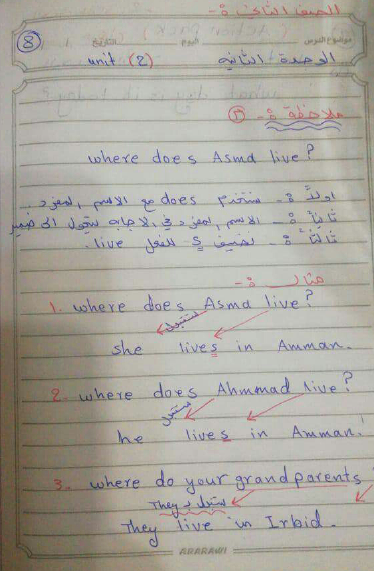 الصف الثاني :-
8
موضوع الدرس اليوم التاريخ
الوحدة الثانية unit (2)
ملاحظة :-
where does Asma live?
اولاً :- نستخدم does مع الاسم المفرد
ثانياً :- الاسم المفرد في الاجابه يتحول الى ضمير
ثالثاً :- نضيف s للفعل live.
مثال :-
1. where does Asma live?
she lives in Amman.
2. where does Ahmmad live?
he lives in Amman.
3- where do your grandparents
They
They live in Irbid.
ABABAWI